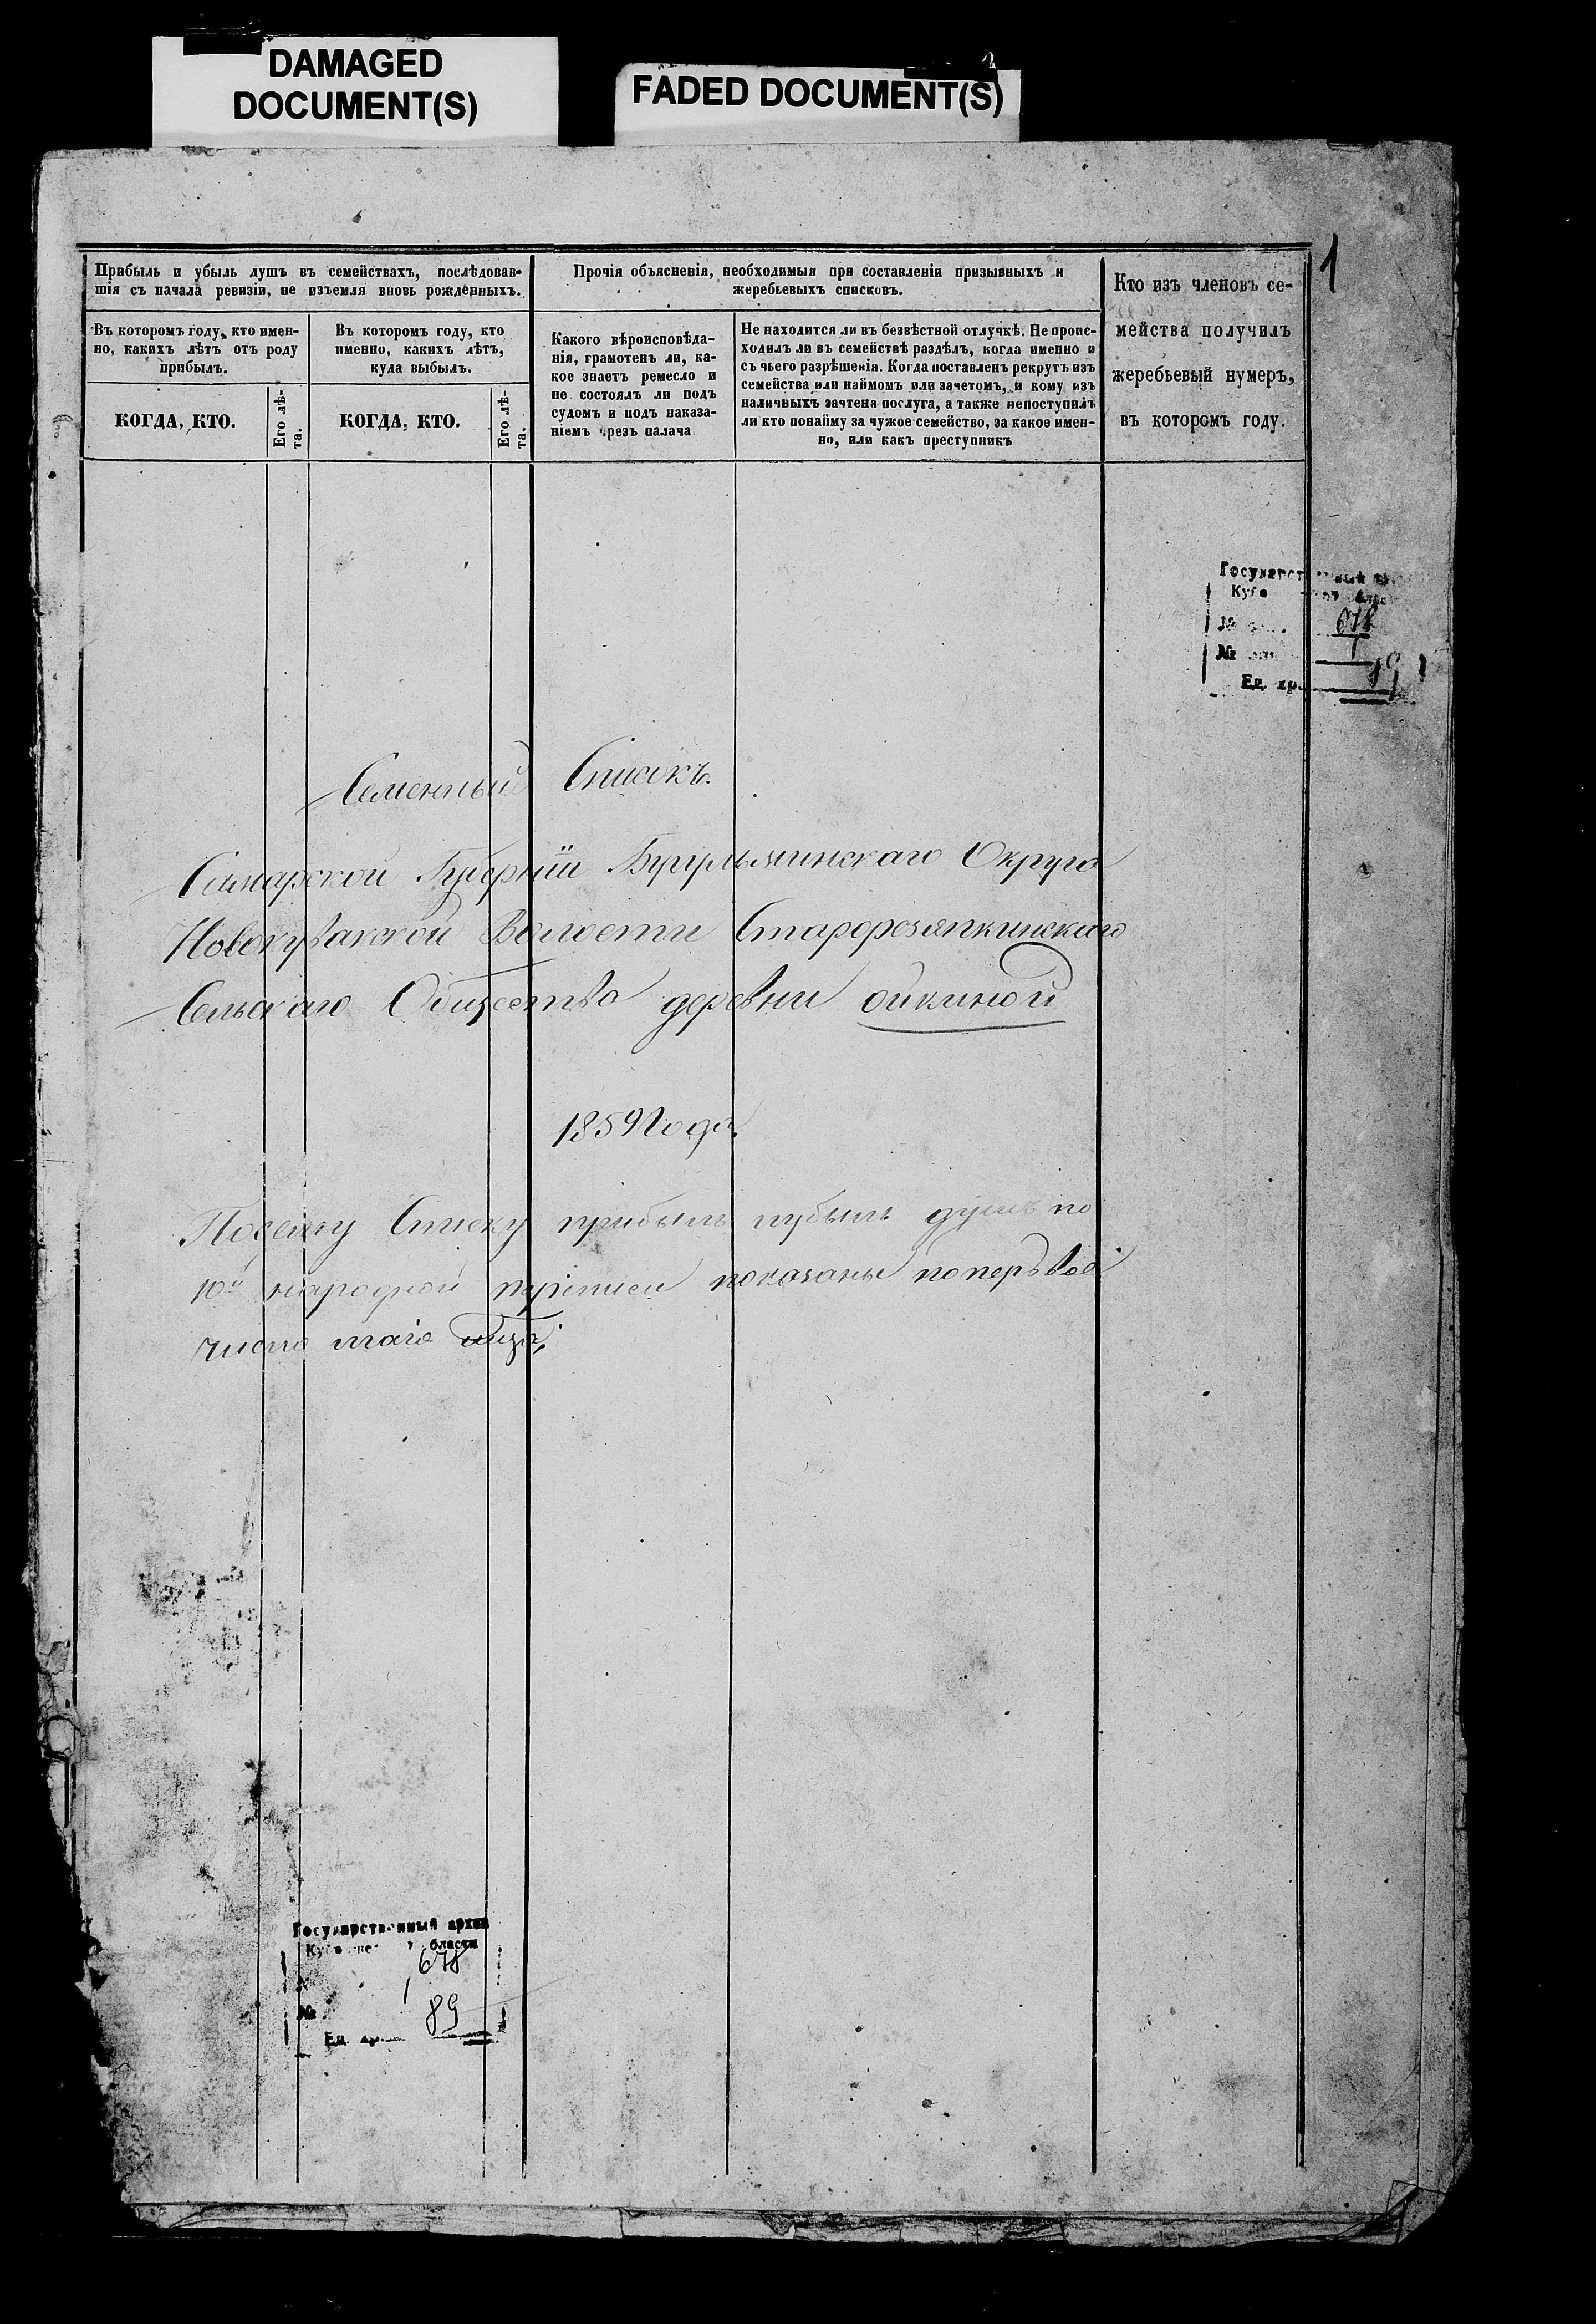 DAMAGED
DOCUMENT(S)
FADED DOCUMENT(S)
1
Прибыль и убыль душъ въ семействахъ, послѣдовав-
шія съ начала ревизіи, не изъемля вновь рожденныхъ.
Въ которомъ году, кто имен-
но, какихъ лѣтъ отъ роду
прибылъ.
КОГДА, КТО.
Его лѣ-
та.
Въ которомъ году, кто
именно, какихъ лѣтъ,
куда выбылъ.
КОГДА, КТО.
Его лѣ-
та.
Прочія объясненія, необходимыя при составленіи призывныхъ и
жеребьевыхъ списковъ.
Какого вѣроисповѣда-
нія, грамотенъ ли, ка-
кое знаетъ ремесло и
не состоялъ ли подъ
судомъ и подъ наказа-
ніемъ чрезъ палача
Не находится ли въ безвѣстной отлучкѣ. Не проис-
ходилъ ли въ семействѣ раздѣлъ, когда именно и
съ чьего разрѣшенія. Когда поставленъ рекрутъ изъ
семейства или наймомъ или зачетомъ, и кому изъ
наличныхъ зачтена послуга, а также непоступилъ
ли кто понайму за чужое семейство, за какое имен-
но, или какъ преступникъ
Кто изъ членовъ се-
мейства получилъ
жеребьевый нумеръ,
въ которомъ году.
Государственный
№ 678
№ 1
Ед. хр.
Семейный Списокъ.
Самарской Губерніи Бугульминскаго Округа
Новокувакской Волости Старорезяпкинскаго
Сельскаго Общества деревни ойкиной
1859 Года.
Посему Списку прибыль иубыль душъ по
10й народной переписи показаны поперьвое
число маія
Государственный архив
области
678
№ 1
Ед. хр. 89